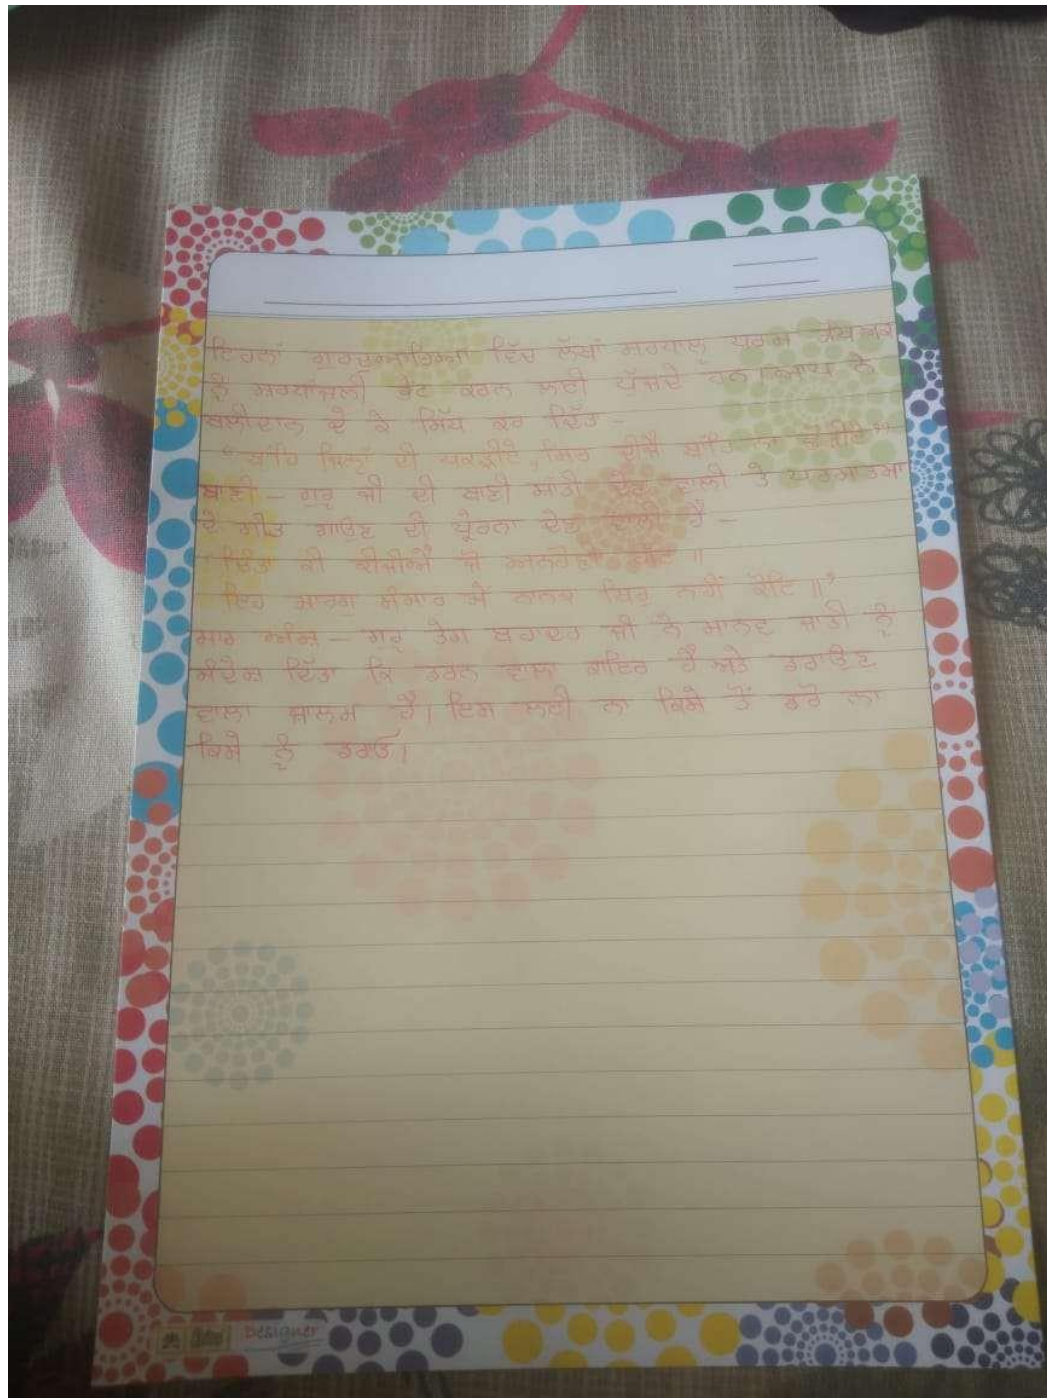 ਇਹਨਾਂ ਗੁਰਦੁਆਰਿਆਂ ਵਿੱਚ ਲੱਖਾਂ ਸ਼ਰਧਾਲੂ
ਨੂੰ ਸ਼ਰਧਾਂਜਲੀ ਭੇਟ ਕਰਨ ਲਈ ਪੁੱਜਦੇ ਹਨ। ਆਪ ਨੇ
ਬਲੀਦਾਨ ਦੇ ਕੇ ਸਿੱਧ ਕਰ ਦਿੱਤਾ -
"ਬਾਂਹਿ ਜਿਨ੍ਹਾਂ ਦੀ ਪਕੜੀਏ, ਸਿਰ ਦੀਜੈ ਬਾਂਹਿ ਨਾ ਛੋੜੀਏ"
ਬਾਣੀ - ਗੁਰੂ ਜੀ ਦੀ ਬਾਣੀ ਸ਼ਾਂਤੀ ਦੇਣ ਵਾਲੀ ਤੇ ਪਰਮਾਤਮਾ
ਦੇ ਗੀਤ ਗਾਉਣ ਦੀ ਪ੍ਰੇਰਨਾ ਦੇਣ ਵਾਲੀ ਹੈ -
"ਚਿੰਤਾ ਕੀ ਕੀਜੀਐ ਜੋ ਅਨਹੋਨੀ ਹੋਇ ॥
ਇਹ ਮਾਰਗੁ ਸੰਸਾਰ ਮੇਂ ਨਾਨਕ ਥਿਰੁ ਨਹੀਂ ਕੋਇ ॥"
ਸਾਰ ਅੰਸ਼ - ਗੁਰੂ ਤੇਗ ਬਹਾਦਰ ਜੀ ਨੇ ਮਾਨਵ ਜਾਤੀ ਨੂੰ
ਸੰਦੇਸ਼ ਦਿੱਤਾ ਕਿ ਡਰਨ ਵਾਲਾ ਕਾਇਰ ਹੈ ਅਤੇ ਡਰਾਉਣ
ਵਾਲਾ ਜ਼ਾਲਮ ਹੈ। ਇਸ ਲਈ ਨਾ ਕਿਸੇ ਤੋਂ ਡਰੋ ਨਾ
ਕਿਸੇ ਨੂੰ ਡਰਾਓ।
Designer